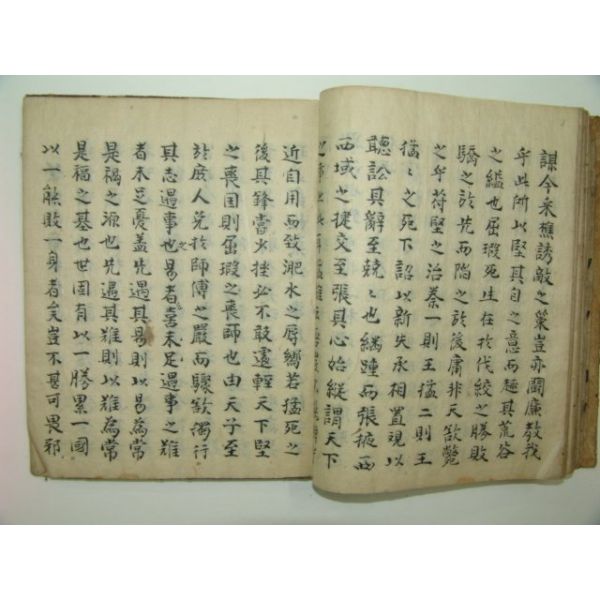 謀今采樵誘敵之策豈亦鬪廉教我
乎此所以堅其自之意而趣其荒谷
之縊也屈瑕死生在於伐絞之勝敗
驕之於先而陷之於後庸非天欲斃
之乎苻堅之治秦一則王猛二則王
猛〻之死下詔以新失丞相置現以
聽訟其辭至兢〻也繼踵而張掖西
西域之捷交至張其心始縱謂天下
近自用而致淝水之辱嚮若猛死之
後其鋒嘗少挫必不敢遽輕天下堅
之喪國則屈瑕之喪師也由天子至
於庶人免於師傅之嚴而驟欲獨行
其志遇事也易者喜未足遇事之難
者未足憂盖先遇其易則以易為常
是禍之源也先遇其難則以難為常
是福之基也世固有以一勝累一國
以一能敗一身者矣豈不甚可畏邪